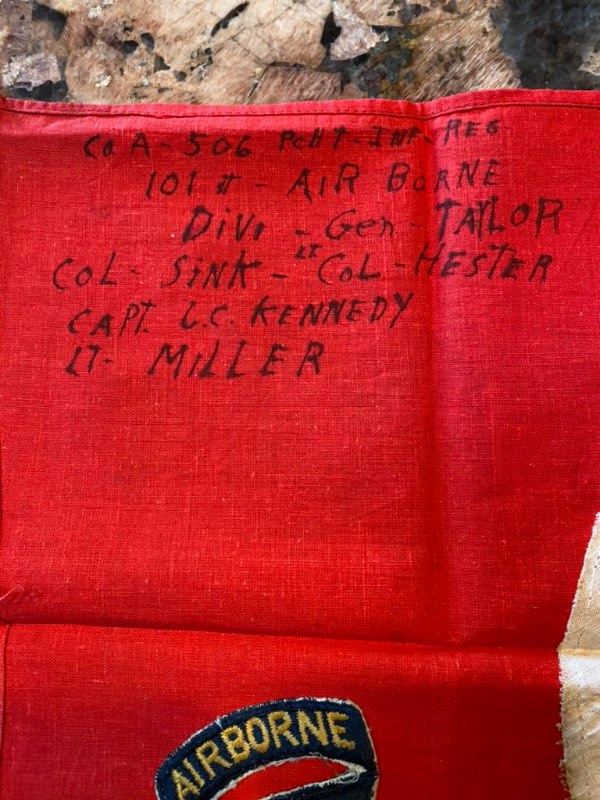 Co A - 506 PCHT - INF - REG
101 st - AIR BORNE
Div. - Gen - TAYLOR
COL - SINK - LT COL - HESTER
CAPT. L.C. KENNEDY
LT - MILLER
AIRBORNE